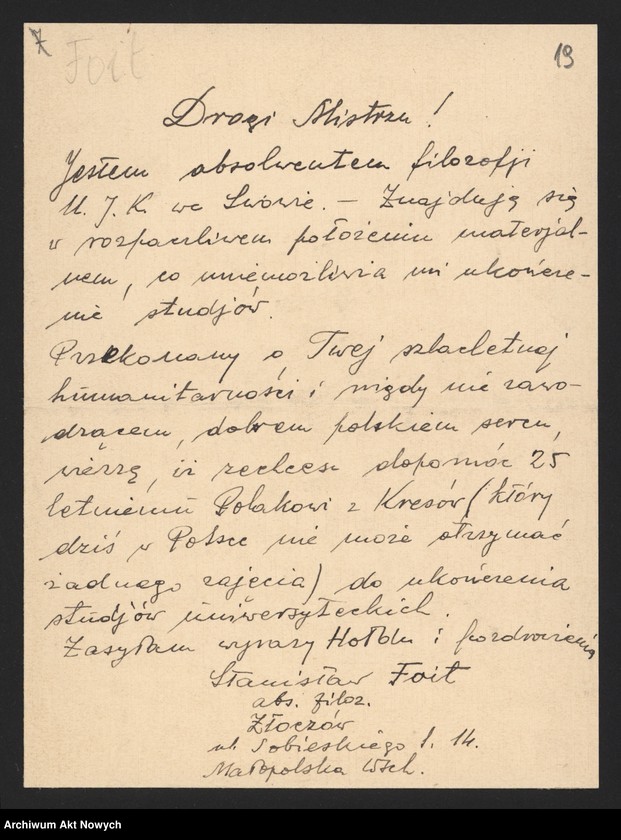 Z
Foit
19
Drogi Mistrzu!
Jestem absolwentem filozofji
U. J. K. we Lwówie. — Znajduję się
w rozpaczliwem położeniu materjal-
nem, co uniemożliwia mi ukończe-
nie studjów.
Przekonany o Twej szlachetnej
humanitarności i nigdy nie zawo-
dzącem, dobrem polskiem sercu,
wierzę, iż zechcesz dopomóc 25
letniemu Polakowi z Kresów (który
dziś w Polsce nie może otrzymać
żadnego zajęcia) do ukończenia
studjów uniwersyteckich.
Zasyłam wyrazy Hołdu i pozdrowienia
Stanisław Foit
abs. filoz.
Złoczów
ul. Sobieskiego l. 14.
Małopolska Wsch.
Archiwum Akt Nowych